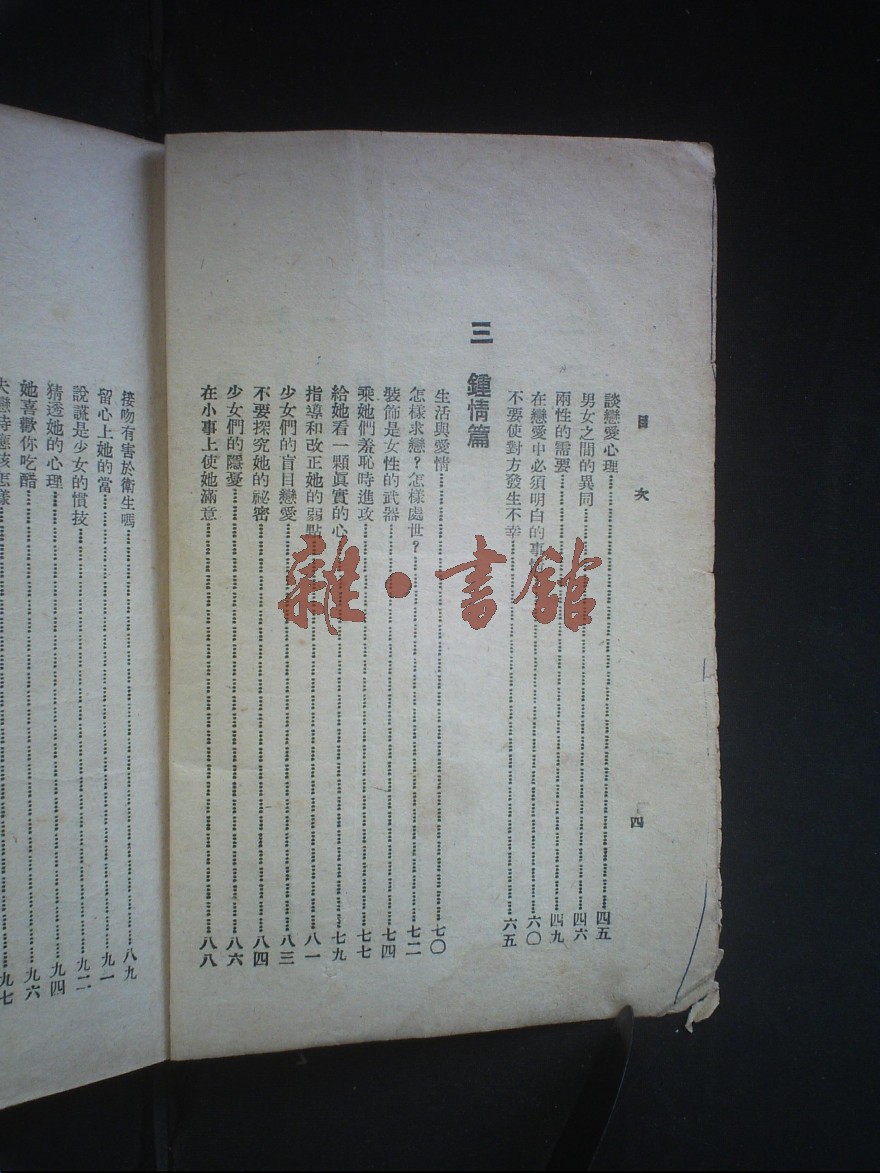 目次
四
談戀愛心理……四五
男女之間的異同……四六
兩性的需要……四九
在戀愛中必須明白的事……六〇
不要使對方發生不幸……六五
三 鍾情篇
生活與愛情……七〇
怎樣求戀？怎樣處世？……七二
裝飾是女性的武器……七四
乘她們羞恥時進攻……七七
給她看一顆眞實的心……七九
指導和改正她的弱點……八一
少女們的盲目戀愛……八三
不要探究她的祕密……八四
少女們的隱憂……八六
在小事上使她滿意……八八
接吻有害於衛生嗎……八九
留心上她的當……九一
說謊是少女的慣技……九二
猜透她的心理……九四
她喜歡你吃醋……九六
失戀時應該怎樣……九七
雜·書館